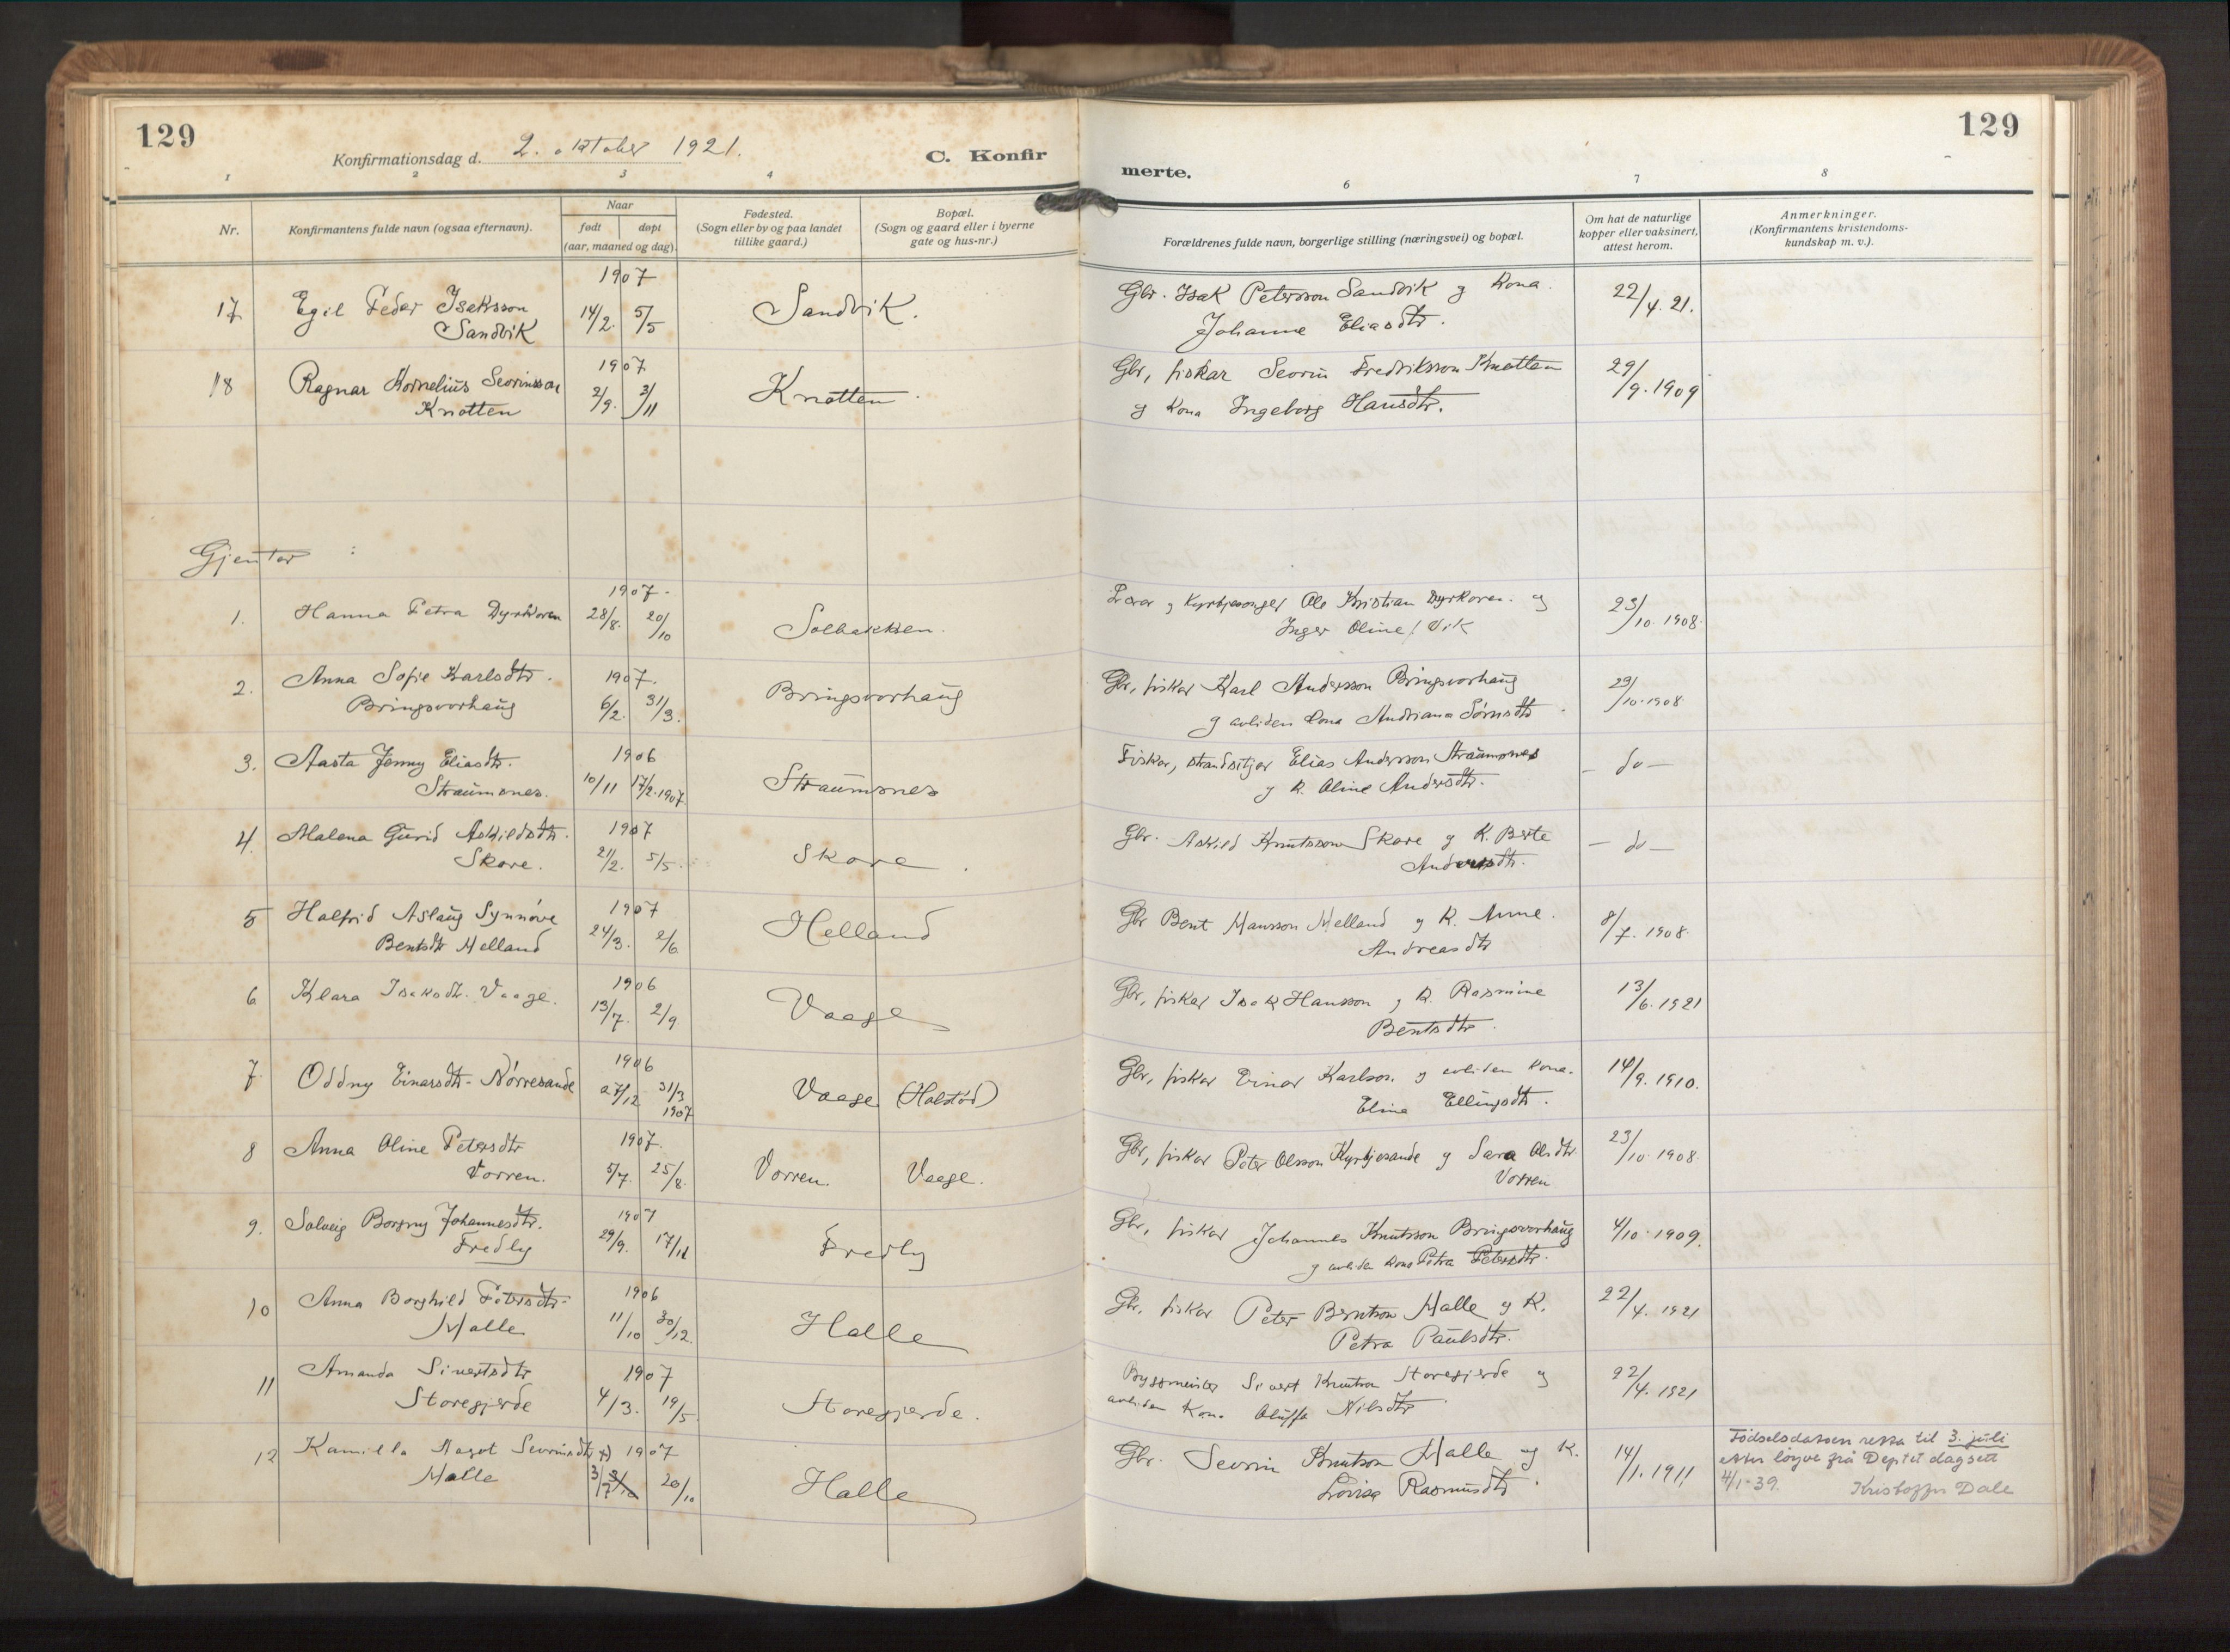 129
Konfirmationsdag d. 2. oktober 1921.
C. Konfirmerte.
129
1 2 3 4 6 7 8
Nr.
Konfirmantens fulde navn (ogsaa efternavn).
Naar
født døpt
(aar, maaned og dag).
Fødested.
(Sogn eller by og paa landet
tillike gaard.)
Bopæl.
(Sogn og gaard eller i byerne
gate og hus-nr.)
Forældrenes fulde navn, borgerlige stilling (næringsvei) og bopæl.
Om hat de naturlige
kopper eller vaksinert,
attest herom.
Anmerkninger.
(Konfirmantens kristendoms-
kundskap m. v.).
1907
17 Egil Peder Isaksson 14/2. 5/5 Sandvik. Gbr. Isak Petersson Sandvik og kona 22/4.21.
Sandvik Johanne Eliasdtr.
1907
18 Ragnar Kornelius Sevrinsson 2/9. 3/11 Knotten Gbr, fiskar Sevrin Fredriksson Knotten 29/9.1909
Knotten og kona Ingeborg Hansdtr.
Gjentor :
1907.
1. Hanna Petra Dyrkoren 28/8. 20/10 Solbakken. Lærar og kyrkjesonger Ole Kristian Dyrkoren og 23/10.1908.
Inger Oline f. Vik
2. Anna Sofie Karlsdtr. 1907. Bringsvorhaug Gbr, fiskar Karl Andersson Bringsvorhaug 23/10.1908
Bringsvorhaug 6/2. 31/3. og avliden kona Andriana Sørnsdtr
3. Aasta Jenny Eliasdtr. 1906 Straumsnes Fiskar, strandsitjar Elias Andersson Straumsnes — do —
Straumsnes. 10/11 17/2.1907. og K. Oline Andersdtr.
4. Malena Gurid Askildsdtr. 1907 Skare Gbr. Askild Knutsson Skare og K. Berte — do —
Skare. 21/2. 5/5. Andersdtr.
5 Halfrid Aslaug Synnøve 1907 Helland Gbr Bent Hansson Helland og K. Anne 8/7.1908.
Bentsdtr Helland 24/3. 2/6. Andreasdtr
6. Klara Isaksdtr. Vaage. 1906 Vaage Gbr, fiskar Isak Hansson og K. Rasmine 13/6.1921
13/7. 2/9 Bentsdtr.
7. Oddny Einarsdtr. Nørresande 1906 Vaage (Halstød) Gbr, fiskar Einar Karlson og avliden kona 14/9.1910.
27/12 31/3 1907 Eline Ellingsdtr.
8 Anna Oline Petersdtr 1907. Vorren. Vaage. Gbr, fiskar Peter Olsson Kyrkjesande og Sara Olsdtr 23/10.1908
Vorren. 5/7. 25/8. Vorren
9. Solveig Borgny Johannesdtr. 1907 Fredly Gbr, fiskar Johannes Knutsson Bringsvorhaug 4/10.1909.
Fredly 29/9. 17/11 og avliden kona Petra Petersdtr.
10 Anna Borghild Petersdtr. 1906 Halle Gbr. fiskar Peter Berntson Halle og K. 22/4.1921
Halle 11/10 30/12. Petra Paulsdtr.
11 Amanda Sivertsdtr 1907 Storegjerde. Byggmeister Sivert Knutson Storegjerde og 22/4.1921
Storegjerde 4/3. 19/5. avliden kona Oluffa Nilsdtr
12 Kamilla Aagot Sevrinsdtr x) 1907 Halle Gbr. Sevrin Knutson Halle og K. 14/1.1911
Halle 3/7 3/10 20/10 Lovisa Rasmusdtr.
Fødselsdatoen retta til 3. juli
etter løyve frå Dep'tet dagsett
4/1-39. Kristoffer Dale